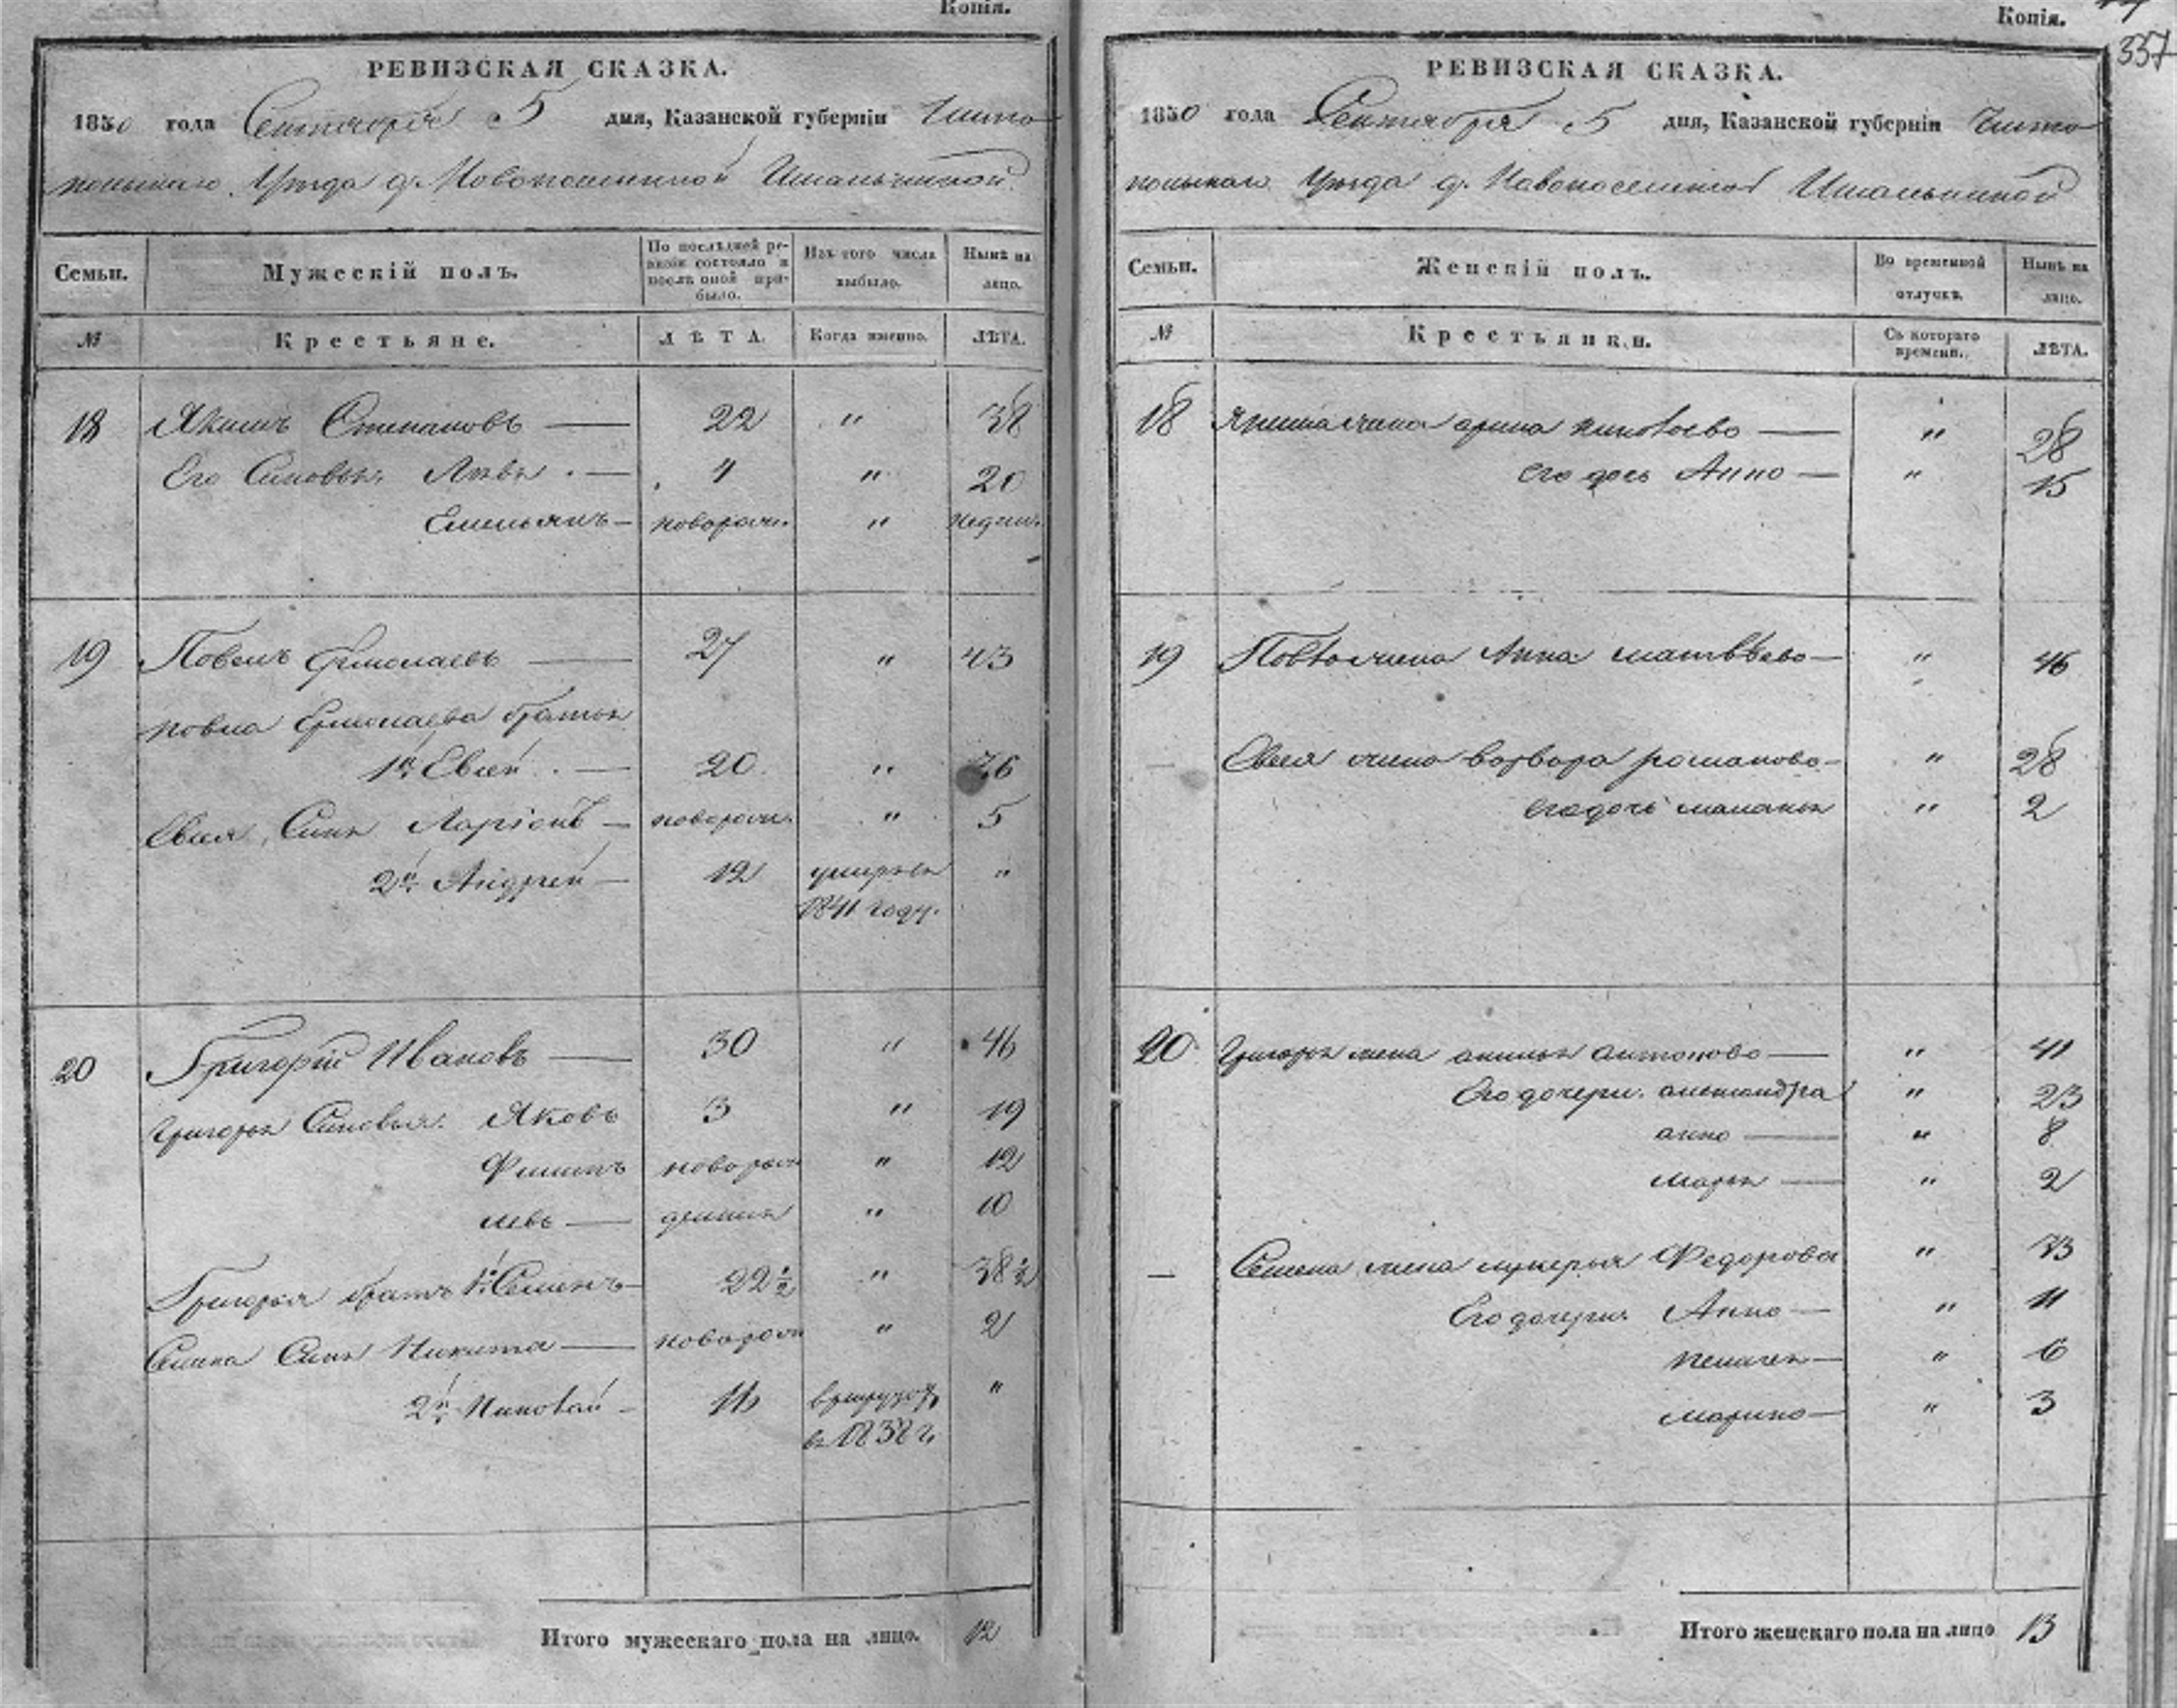 Копія.
РЕВИЗСКАЯ СКАЗКА.
1850 года Сентября 5 дня, Казанской губерніи Чисто
польскаго Уѣзда д. Новопоселенной
Семьи. Мужескій полъ. По послѣдней ре-
визіи состояло и
послѣ оной при-
было. Изъ того числа
выбыло. Нынѣ на
лицо.
№ Крестьяне. ЛѢТА. Когда именно. ЛѢТА.
18 Якимъ Степановъ — 22 " 38
Его Сыновья, — 4 " 20
Емельянъ — новорож. " недѣл.
19 Повелъ Ермолаевъ — 27 " 43
повла Ермолаева братья
1й Евсей — 20 " 36
Евсея Сынъ Ларіонъ — новорож. " 5
2й Андрей — 12 умеръ "
1841 году.
20 Григорій Ивановъ — 30 " 46
Григорья Сыновья: Яковъ 3 " 19
Филипъ новорож " 12
левъ — " 10
Григорья братъ 1й Семенъ — 22½ " 38½
Семена Сынъ Никита — новорож " 2
2й Николай — 16 в рекруты "
в 1838 г.
Итого мужескаго пола на лицо. 12
Копія.
337
РЕВИЗСКАЯ СКАЗКА.
1850 года Сентября 5 дня, Казанской губерніи Чисто
польскаго Уѣзда д. Новопоселенной
Семьи. Женскій полъ. Во временной
отлучкѣ. Нынѣ на
лицо.
№ Крестьянки. Съ котораго
времени. ЛѢТА.
18 Якима жена арина николаева — " 28
его дочь Анна — " 15
19 Повла жена Анна матвѣева — " 46
— Евсея жена варвара романова — " 28
его дочь маланья " 2
20 Григорья жена аксинья антонова — " 41
Его дочери. александра " 23
анна — " 8
марья — " 2
— Семена жена лукерья Федорова " 33
Его дочери. Анна — " 11
пелагея — " 6
марина — " 3
Итого женскаго пола на лицо 13